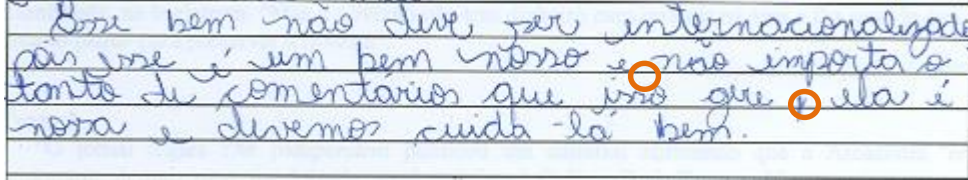 Esse bem não deve ser internacionalizado
pois esse é um bem nosso e não importa o
tanto de comentários que isso gire ela é
nossa e devemos cuida-lá bem.